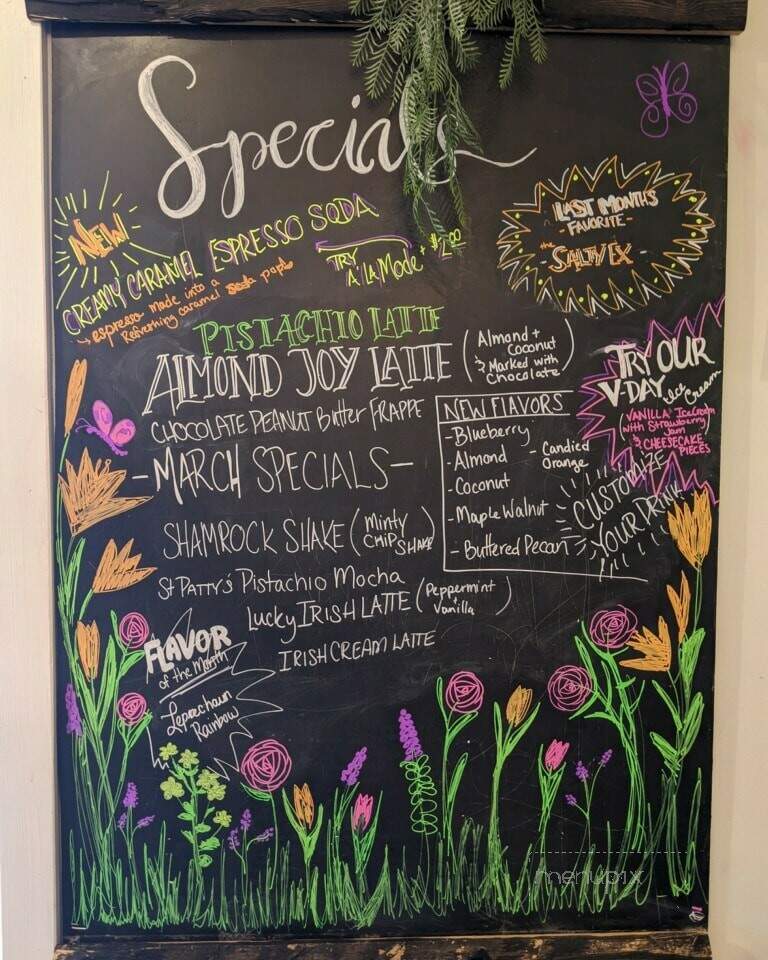 Specials
NEW
CREAMY CARAMEL ESPRESSO SODA
→ espresso made into a
Refreshing caramel soda pop!
TRY
A LA MODE + $2.00
LAST MONTH'S
- FAVORITE -
the
SALTY EX
PISTACHIO LATTE
ALMOND JOY LATTE
(Almond +
Coconut
& Marked with
Chocolate)
CHOCOLATE PEANUT Butter FRAPPE
- MARCH SPECIALS -
SHAMROCK SHAKE (Minty
CHIP SHAKE)
St PATTY'S Pistachio Mocha
Lucky IRISH LATTE (Peppermint
+ Vanilla)
IRISH CREAM LATTE
NEW FLAVORS
- Blueberry
- Almond
- Candied
Orange
- Coconut
- Maple Walnut
- Buttered Pecan
TRY OUR
V-DAY Ice Cream
(VANILLA IceCream
with Strawberry
Jam
& CHEESECAKE
PIECES
CUSTOMIZE
YOUR DRINK
FLAVOR
of the Month
Leprechaun
Rainbow
menupix